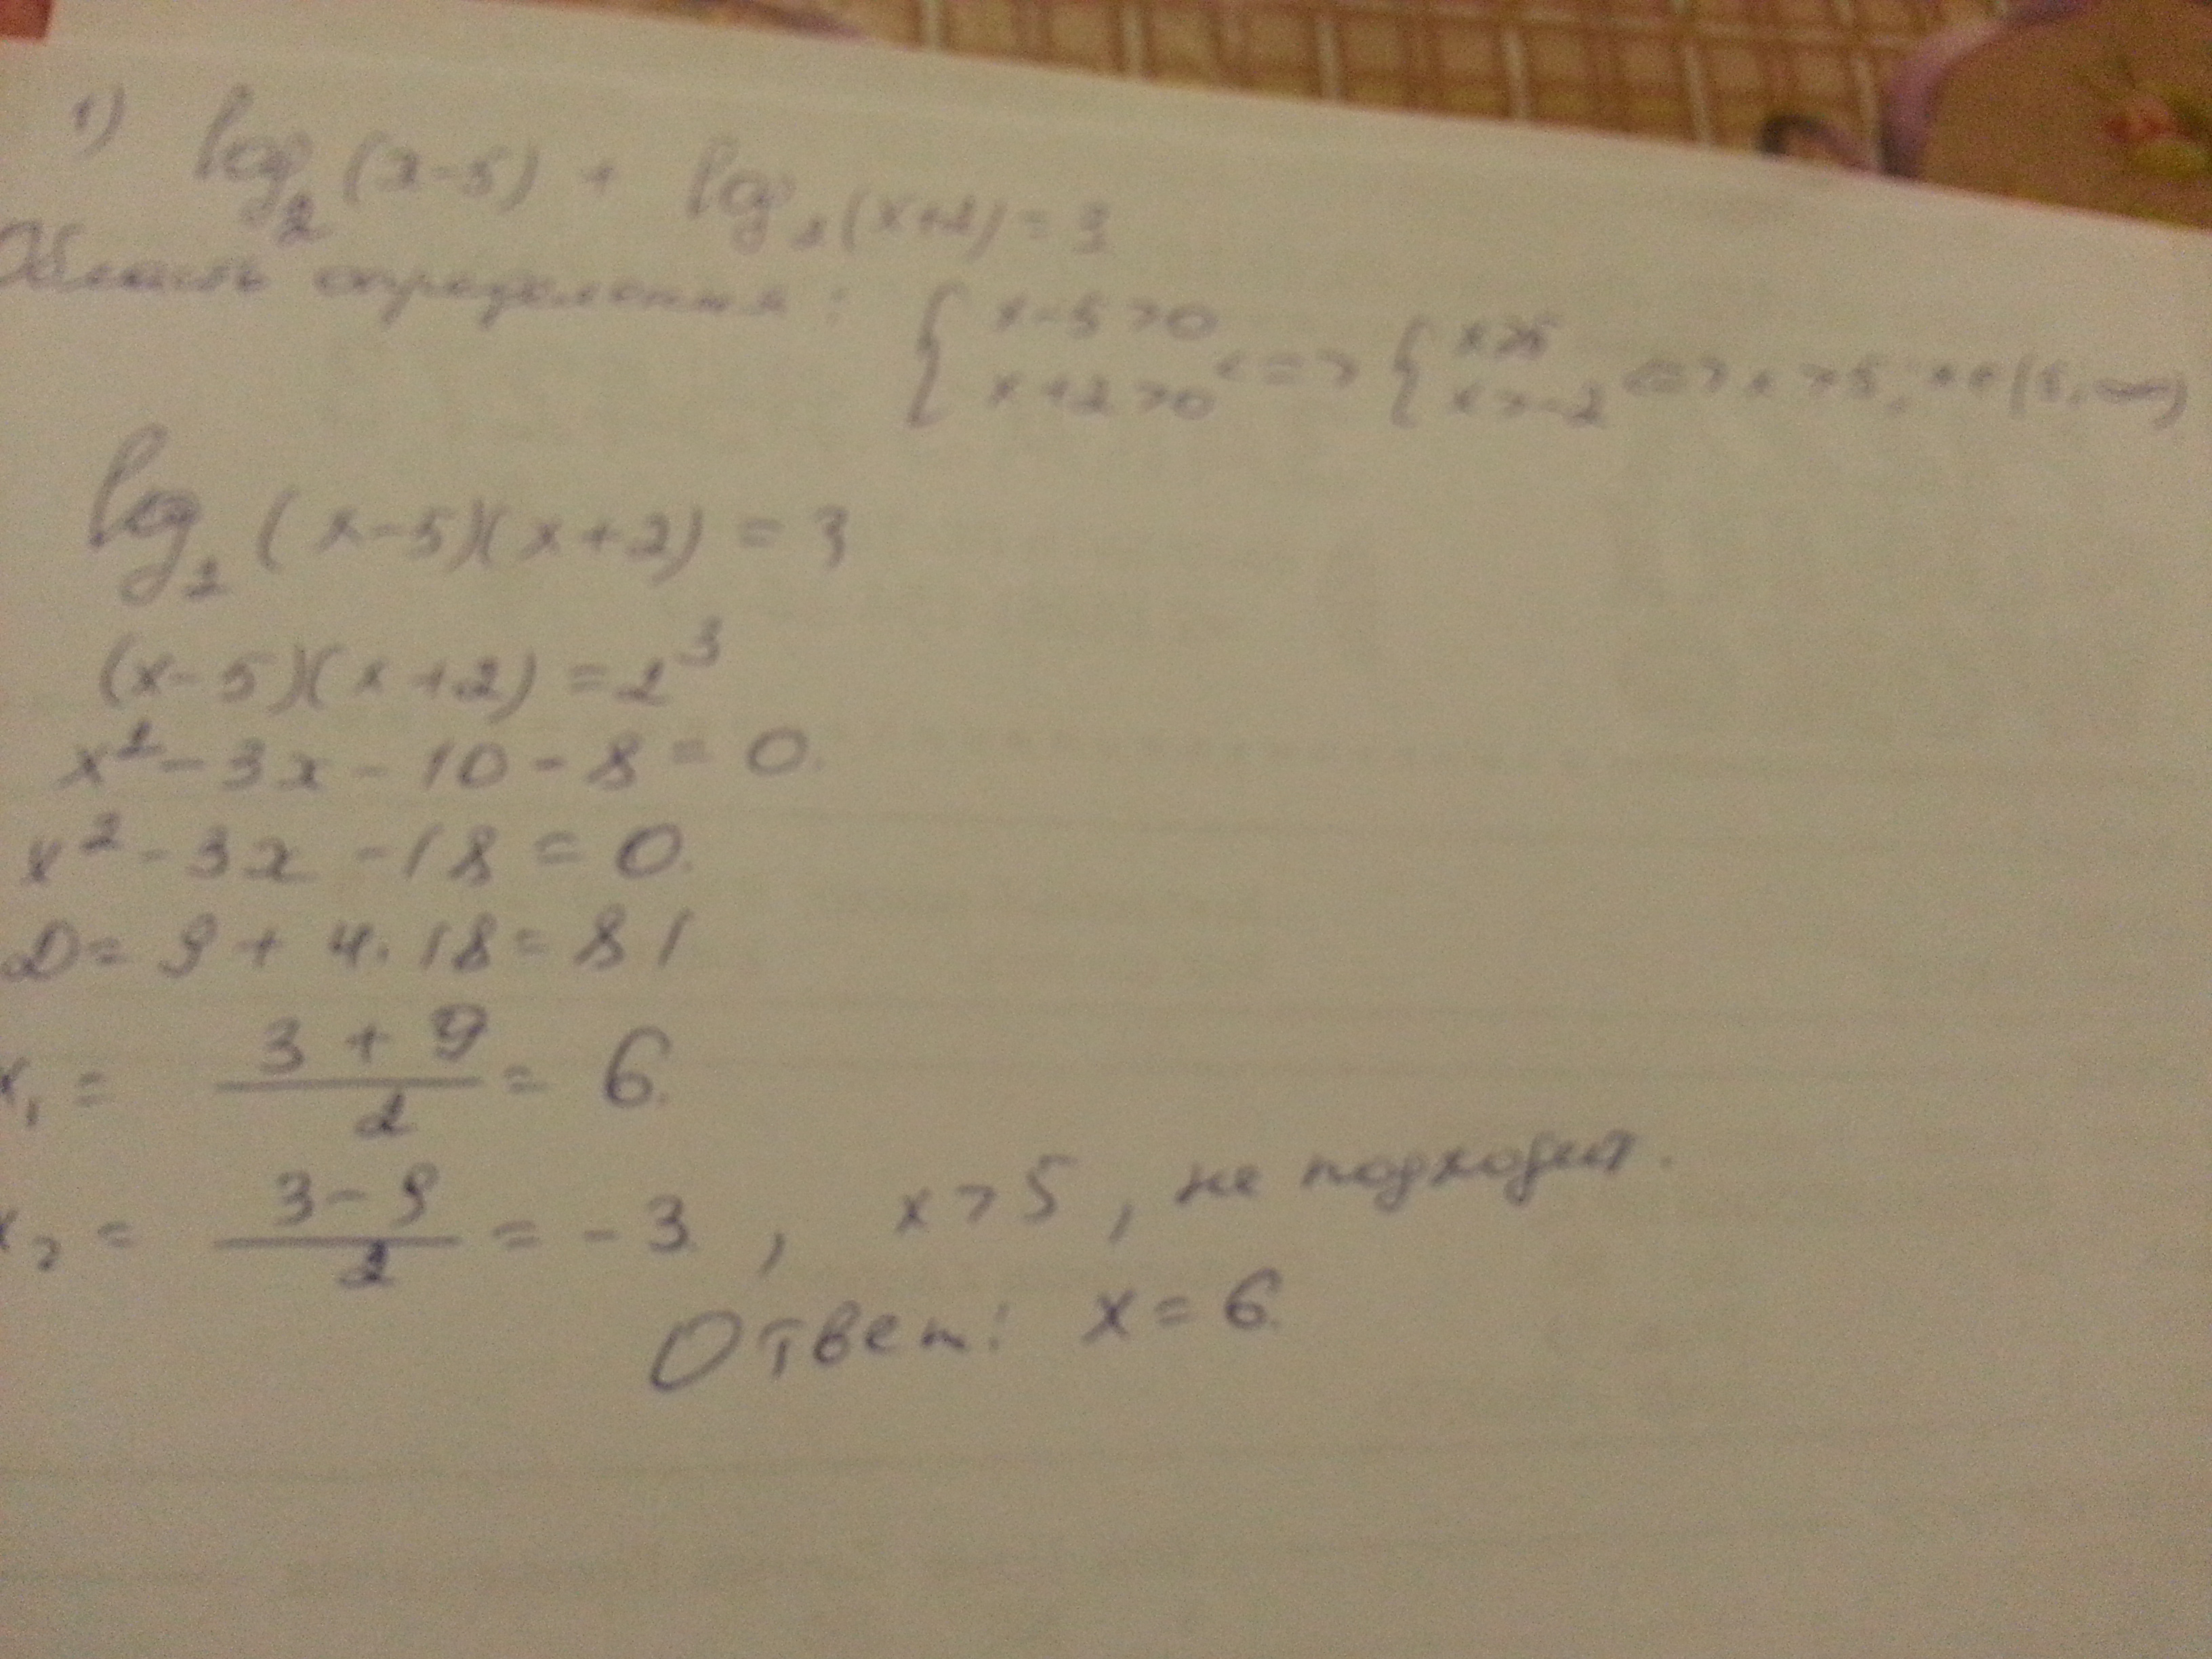 1) log₂(x-5) + log₂(x+2) = 3
Область определения: { x-5>0 x+2>0 <=> { x>5 x>-2 <=> x>5, x∈(5,∞)
log₂(x-5)(x+2) = 3
(x-5)(x+2) = 2³
x²-3x-10-8=0.
x²-3x-18=0.
D=9+4·18=81
x₁ = (3+9)/2 = 6.
x₂ = (3-9)/2 = -3, x>5, не подходит.
Ответ: x=6.